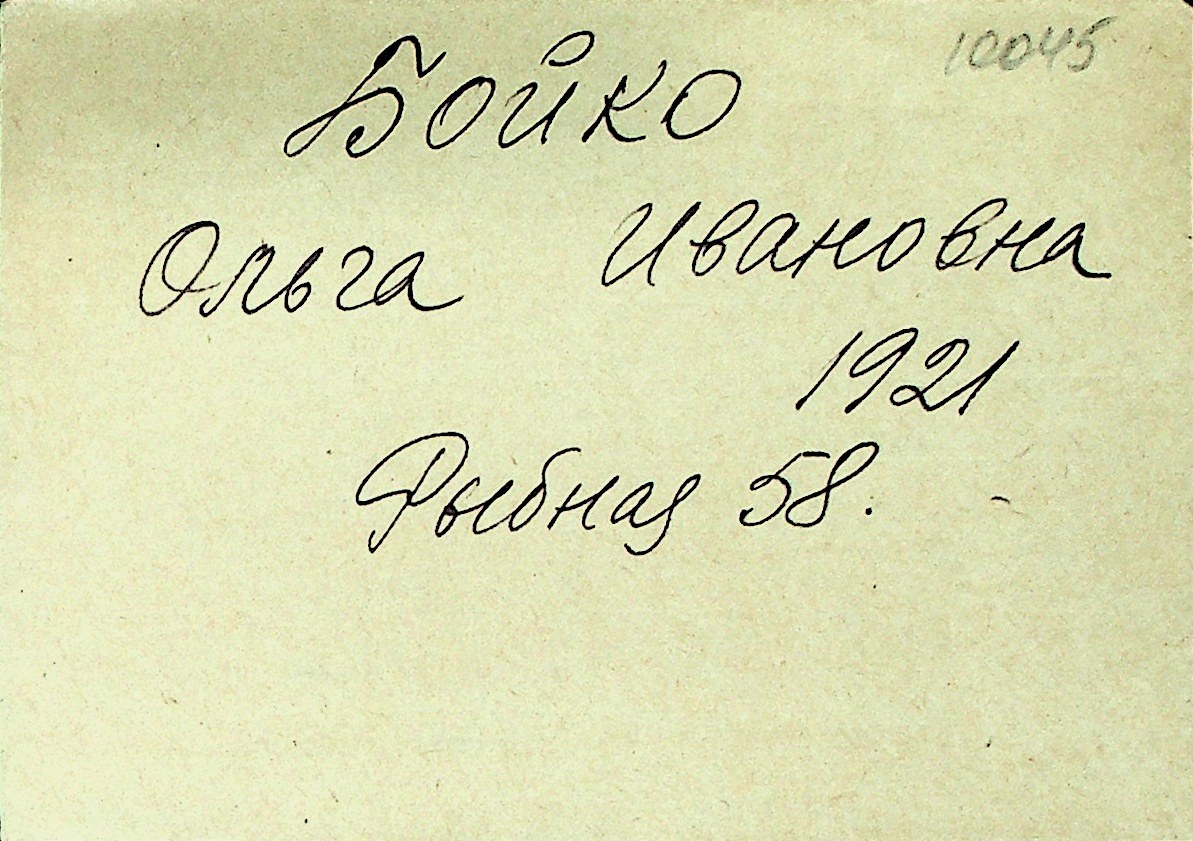 10045
Бойко
Ольга Ивановна
1921
Рыбная 58.